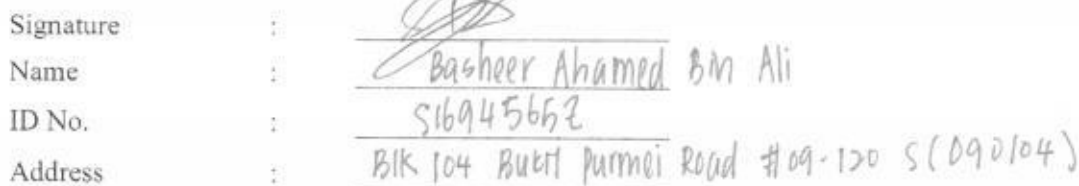 Signature :
Name : Basheer Ahamed Bin Ali
ID No. : S1694565Z
Address : Blk 104 Bukit Purmei Road #09-120 S(090104)